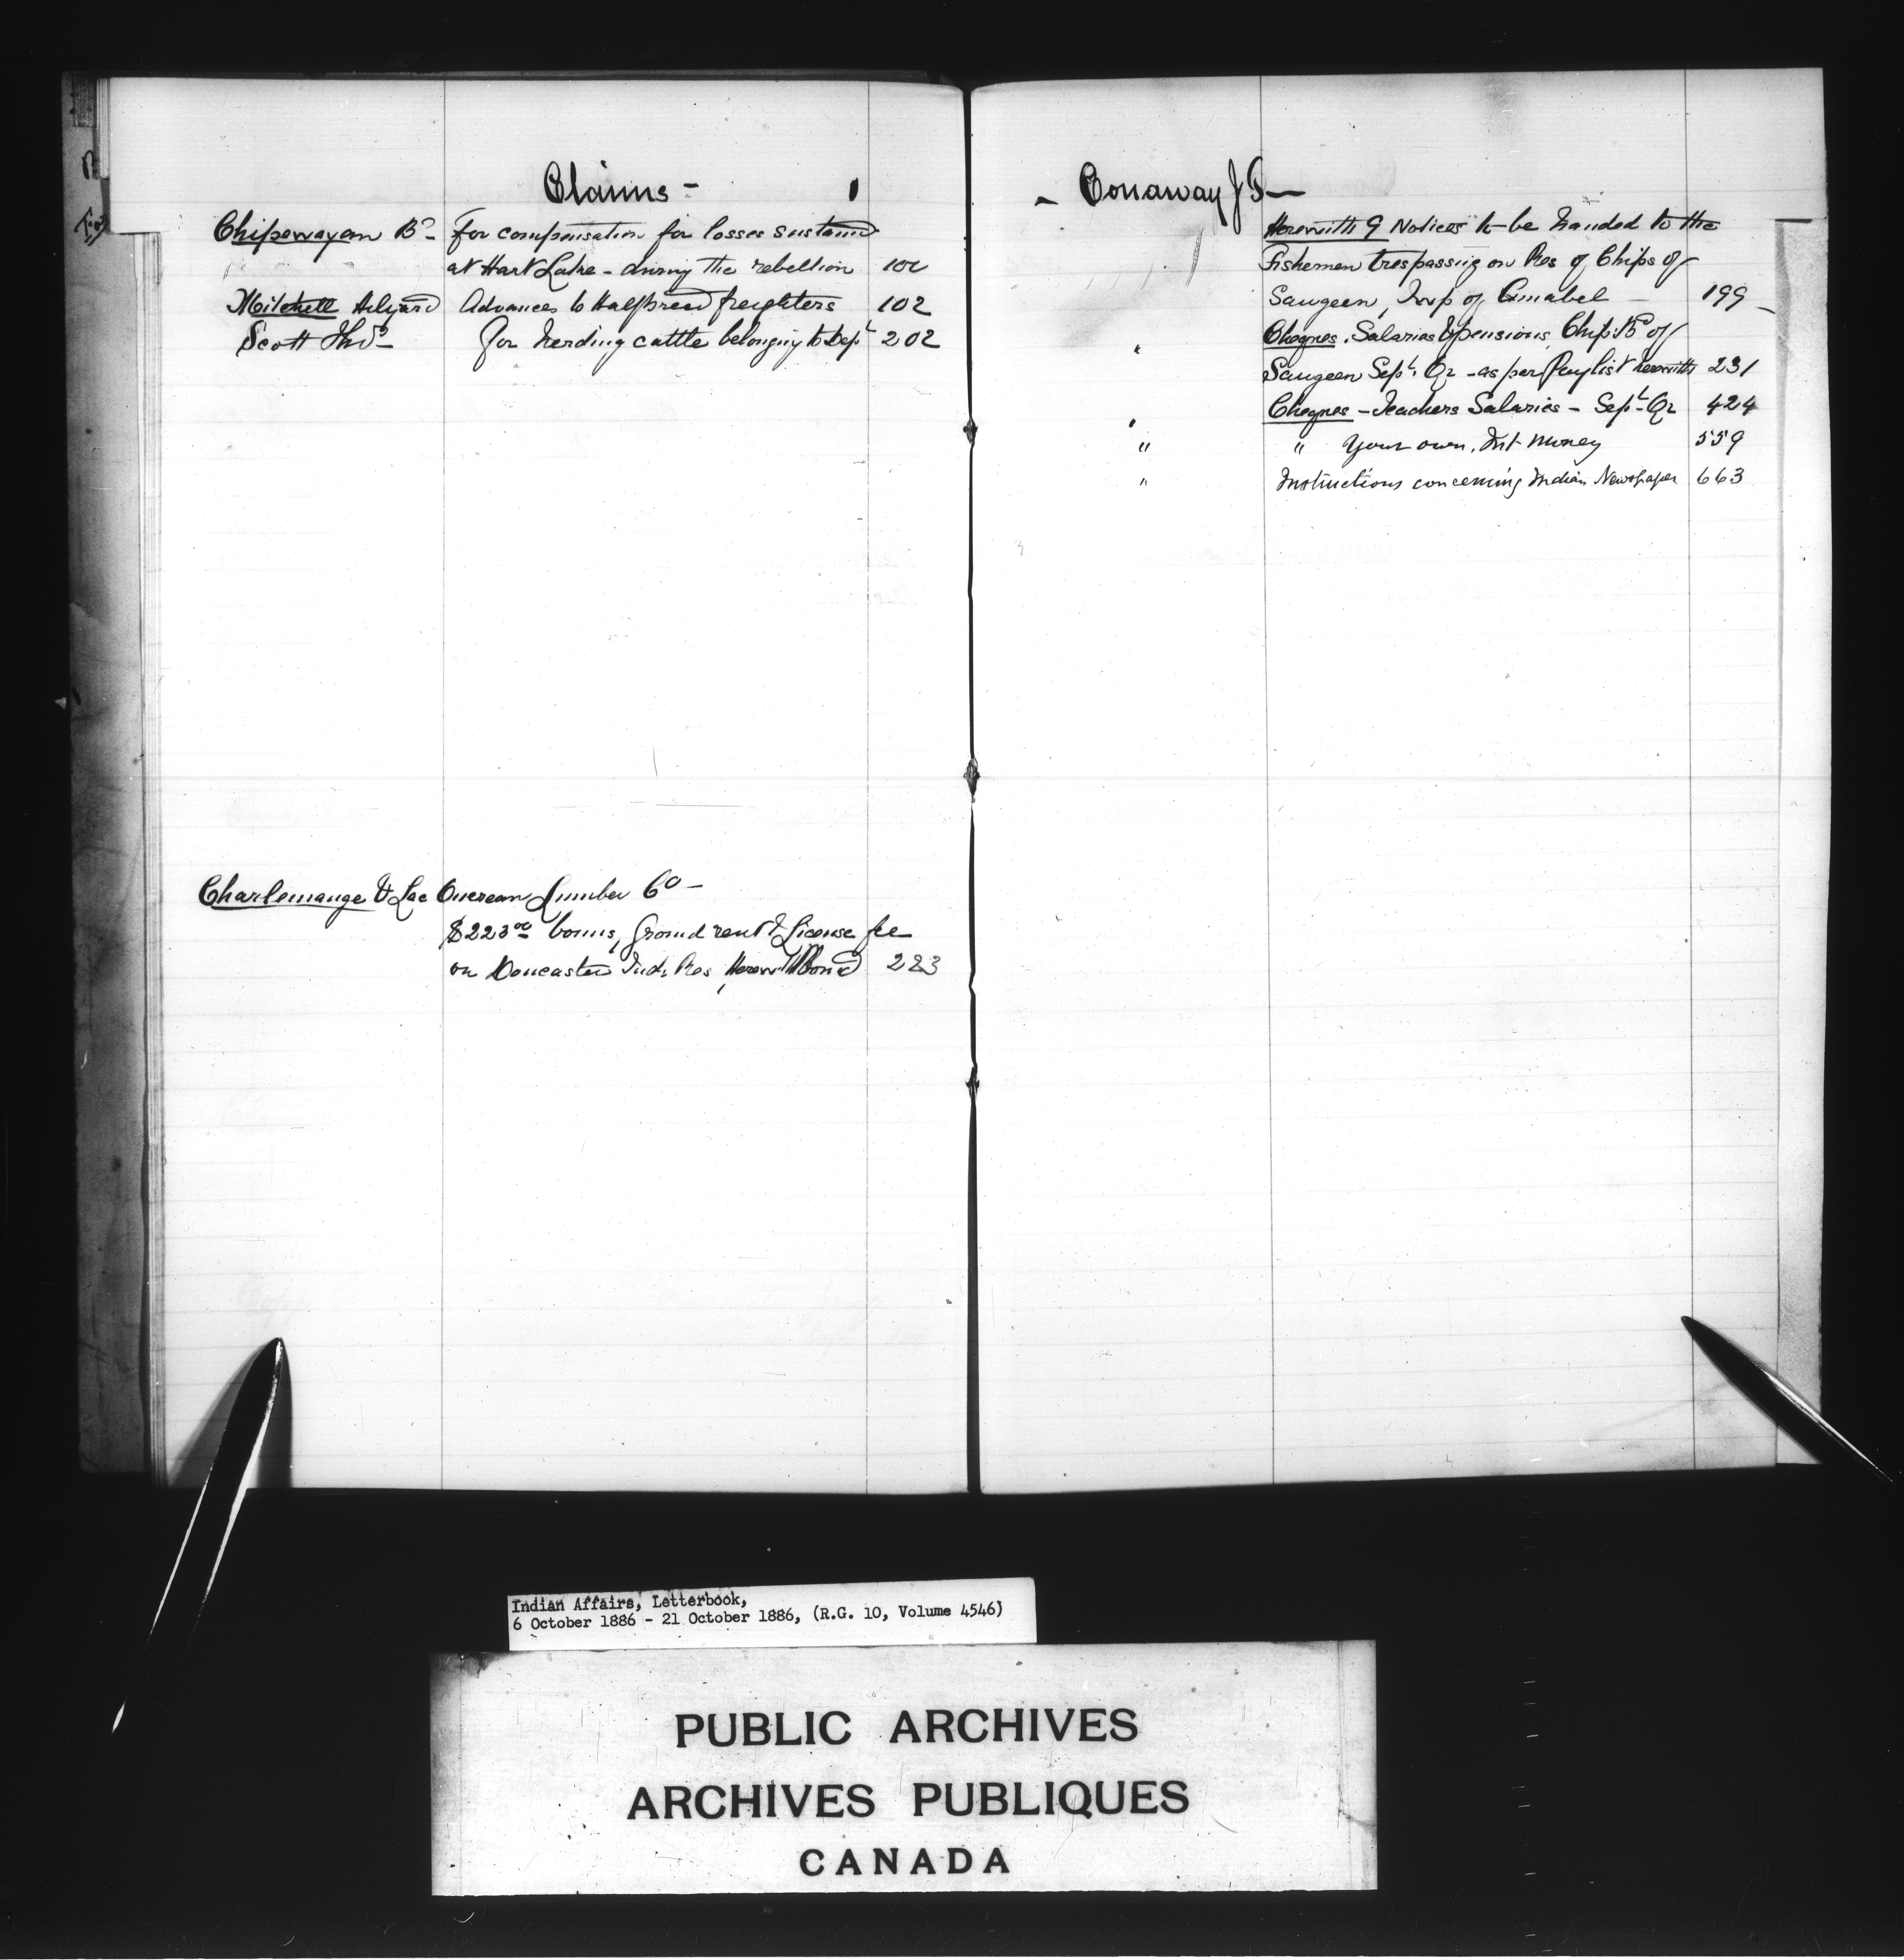 Claims -
Chipewayan Bd - For compensation for losses sustained
at Hart Lake - during the rebellion 100
Mitchell Hilyard Advances to Halfbreed freighters 102
Scott Thos - For herding cattle belonging to Dept 202
Charlemange & Lac Ouereau Lumber Co -
$223.00 bonus, ground rent & License fee
on Doncaster Ind. Res, Herewith Bond 223
- Conaway J T -
Herewith 9 Notices to be handed to the
Fishermen trespassing on Res of Chips of
Saugeen, Twp of Amabel - 199 -
" Cheques. Salaries & pensions, Chip. Bd of
Saugeen Sept. Qr - as per Paylist herewith 231
" Cheques - Teachers Salaries - Sept - Qr 424
" " Your own. Int money 559
" Instructions concerning Indian Newspaper 663
Indian Affairs, Letterbook,
6 October 1886 - 21 October 1886, (R.G. 10, Volume 4546)
PUBLIC ARCHIVES
ARCHIVES PUBLIQUES
CANADA